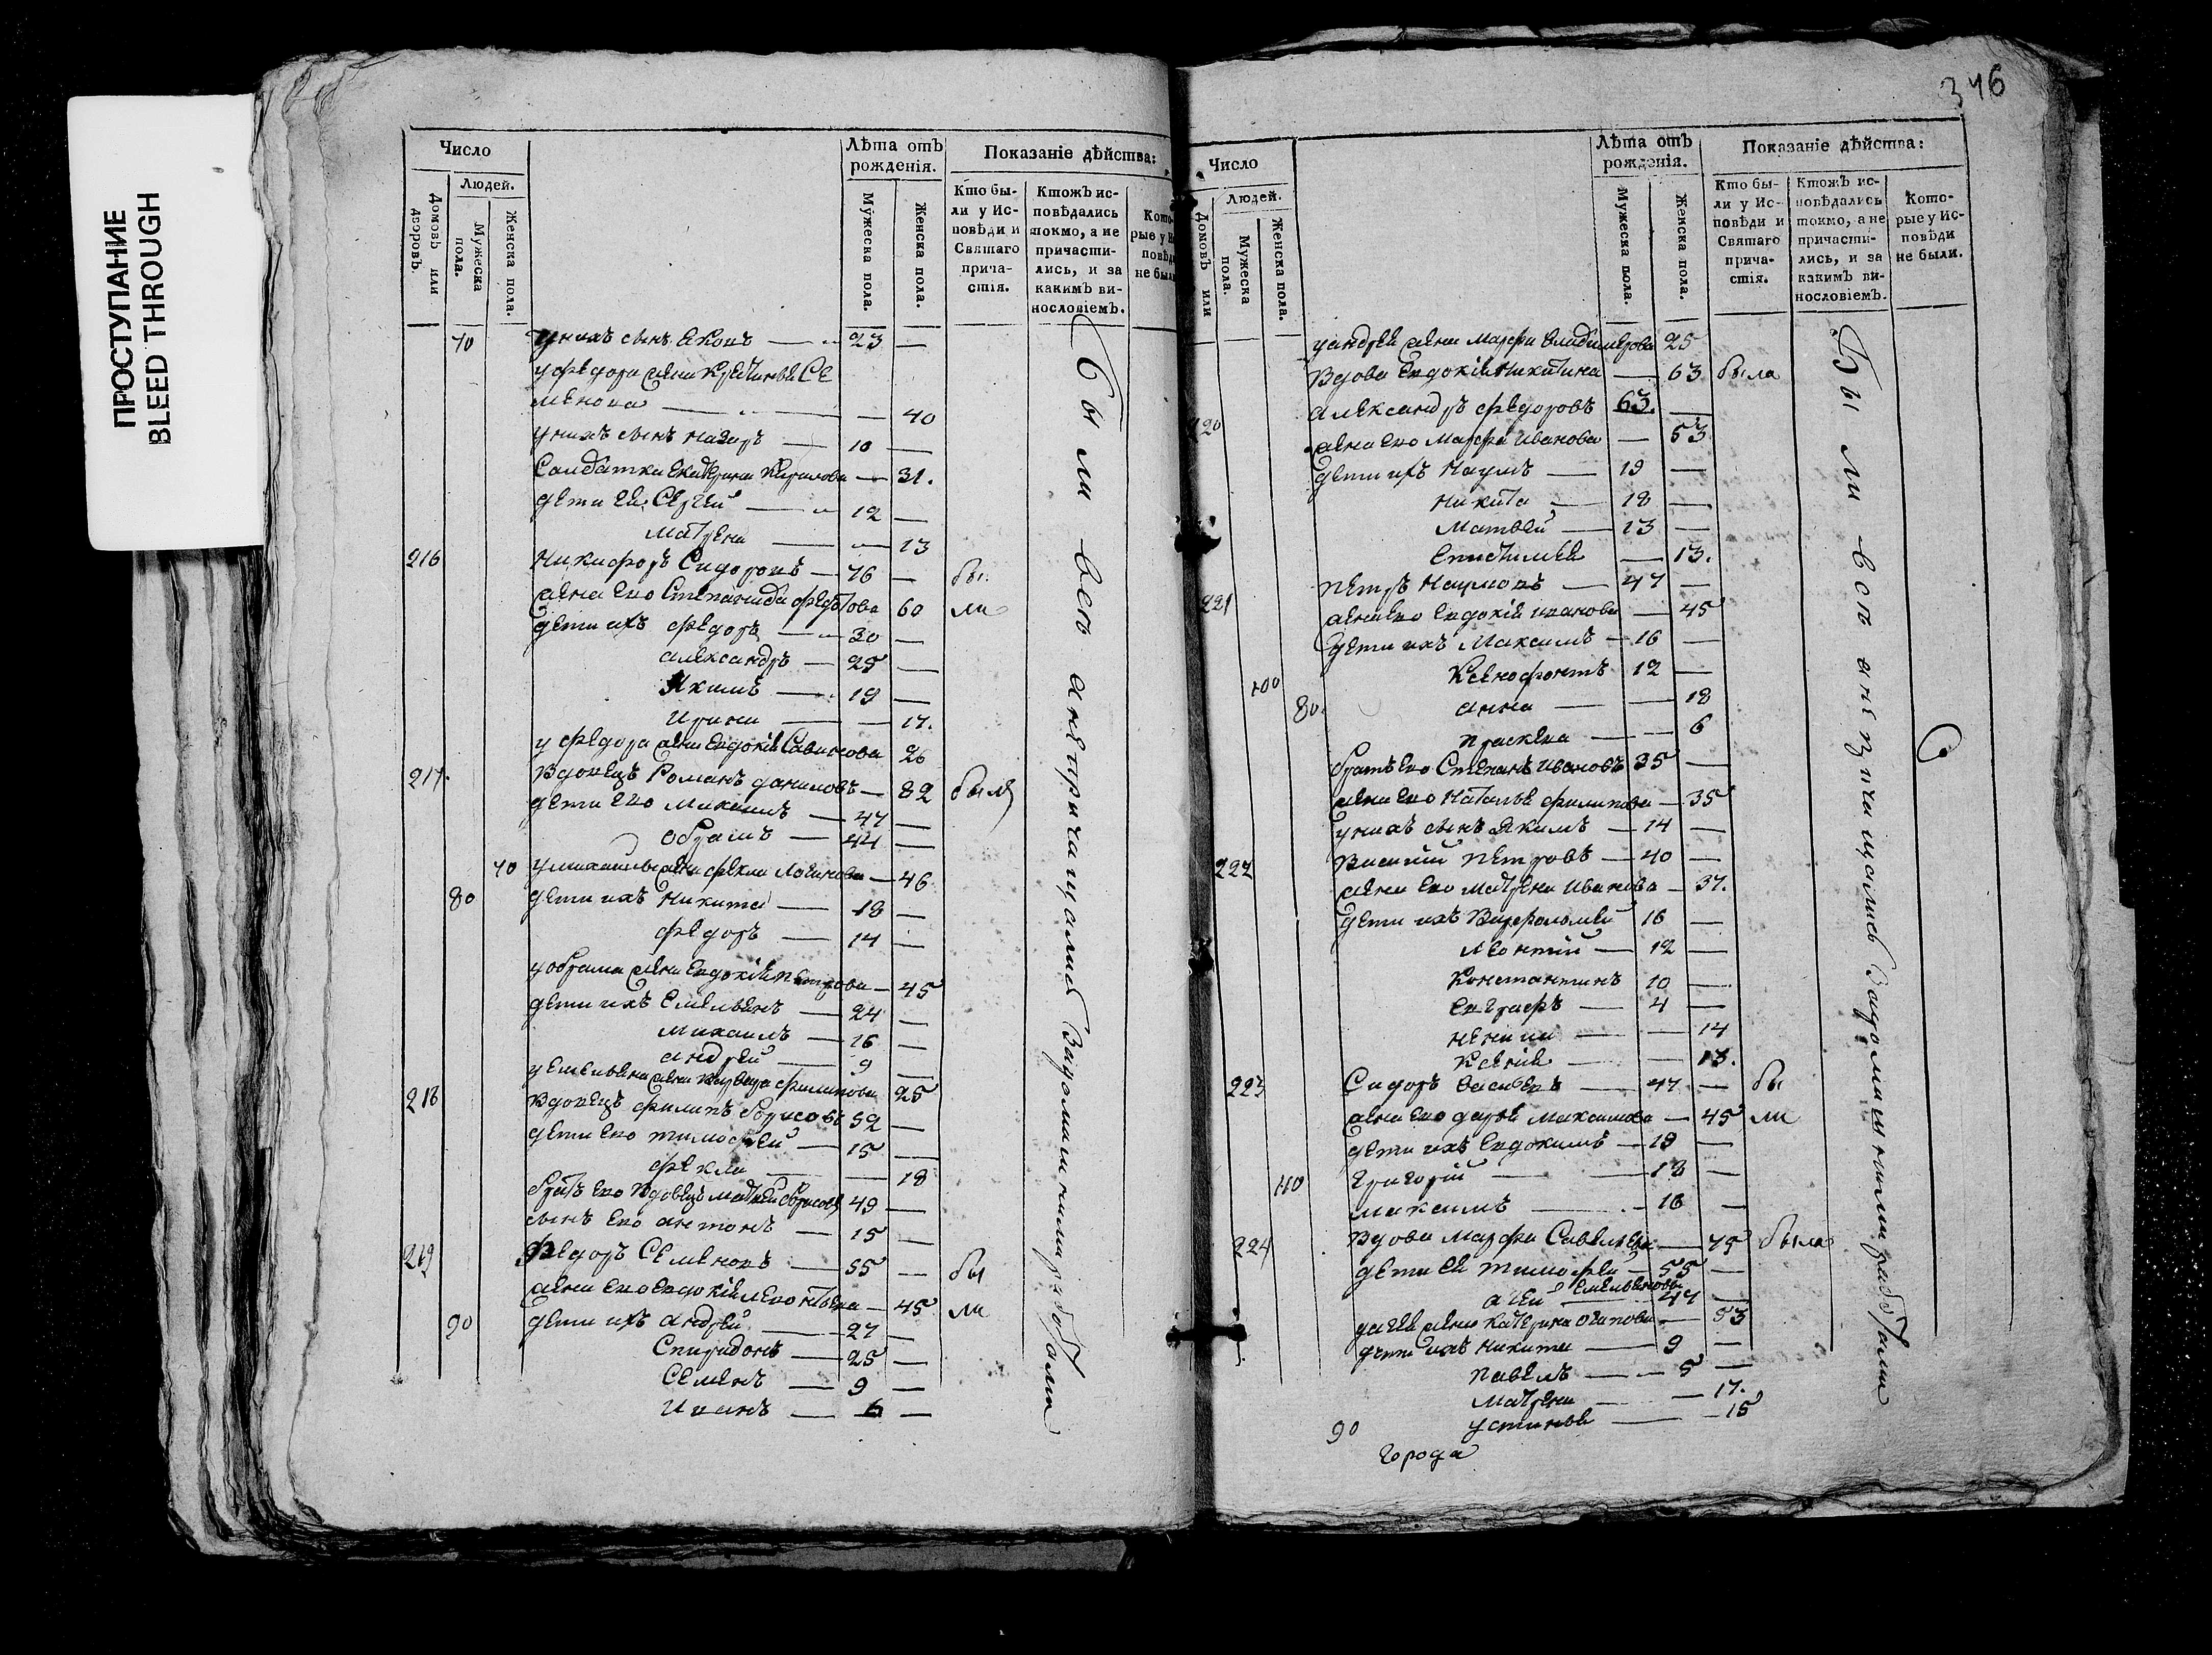 ПРОСТУПАНИЕ
BLEED THROUGH
Число
Людей.
Домовъ или дворовъ.
Мужеска пола.
Женска пола.
Лѣта отъ рожденія.
Мужеска пола.
Женска пола.
Показаніе дѣйства:
Кто были у Исповѣди и Святаго причастія.
Ктожъ исповѣдались токмо, а не причастились, и за какимъ винословіемъ.
Которые у Исповѣди не были
70 у нихъ сынъ Яковъ — 23 —
у федора жена Устинья Се
менова — — 40
у нихъ сынъ Назаръ — 10 —
Салдатка Екатерина Кирилова — 31.
дети ея Сергей — 12 —
Матрена — — 13
216 Никифоръ Сидоровъ — 76 — бы
жена ево Степанида федотова 60 ли
дети ихъ федоръ — 30 —
александръ — 25 —
Якимъ — 19 —
Ирина — — 17.
у федора жена Евдокия Савинова 26
217. Вдовецъ Романъ даниловъ — 82 былъ
дети ево Михаилъ — 47 —
Абрамъ — 44 —
70 у михаилы жена фекла Логинова — 46
80 дети ихъ Никита — 18 —
федоръ — 14 —
у абрама жена Евдокия Петрова — 45
дети ихъ Емельянъ — 24 —
Михаилъ — 16 —
андрей — 9 —
у емельяна жена Варвара филипова 25
218 Вдовецъ филипъ Борисовъ 52 —
дети ево тимофей — 15 —
фекла — — 18
братъ ево вдовецъ матвей борисовъ 49 —
сынъ ево антонъ — 15 —
219 федоръ Семеновъ — 55 — бы
жена ево евдокия леонтьева — 45 ли
90 дети ихъ андрей — 27 —
Спиридонъ — 25 —
Семенъ — 9 —
Иванъ — 6 —
Были все а не причащались за домашними работами
346
Число
Людей.
Домовъ или
Мужеска пола.
Женска пола.
Лѣта отъ рожденія.
Мужеска пола.
Женска пола.
Показаніе дѣйства:
Кто были у Исповѣди и Святаго причастія.
Ктожъ исповѣдались токмо, а не причастились, и за какимъ винословіемъ.
Которые у Исповѣди не были.
у андрея жена Марфа Владимерова 25
Вдова Евдокия Никитина — 63 была
220 александръ федоровъ 63. —
жена ево Марфа Иванова — 53
дети ихъ Наумъ — 19 —
Никита — 18 —
Матвей — 13 —
Епистимия — 13.
221 Петръ Наумовъ — 47 —
жена ево Евдокия иванова — 45
дети ихъ Максимъ — 16 —
100 Ксенофонтъ 12 —
80. анна — — 18
Прасковья — — 6
братъ ево Степанъ Ивановъ 35 —
жена ево Наталья филипова — 35
у нихъ сынъ Якимъ — 14 —
222 Василий Петровъ — 40 —
жена ево Матрена Иванова — 37.
дети ихъ Варфоломей 16 —
Леонтий — 12 —
Константинъ 10 —
Евграфъ — 4 —
Ненила — — 14
Ксения — — 13.
223 Сидоръ Васильевъ — 47 — бы
жена ево дарья Максимова — 45 ли
дети ихъ Евдокимъ — 19 —
110 Григорий — 18 —
максимъ — 16 —
224 Вдова Марфа Савельева — 75 была
дети ея тимофей — 55 —
Емельяновы
агей — 47 —
у агея жена Катерина Осипова — 53
дети ихъ Никита — 9 —
Павелъ — 5 —
Матрена — 17.
90 устинья — 15
Были все а не причащались за домашними работами
города